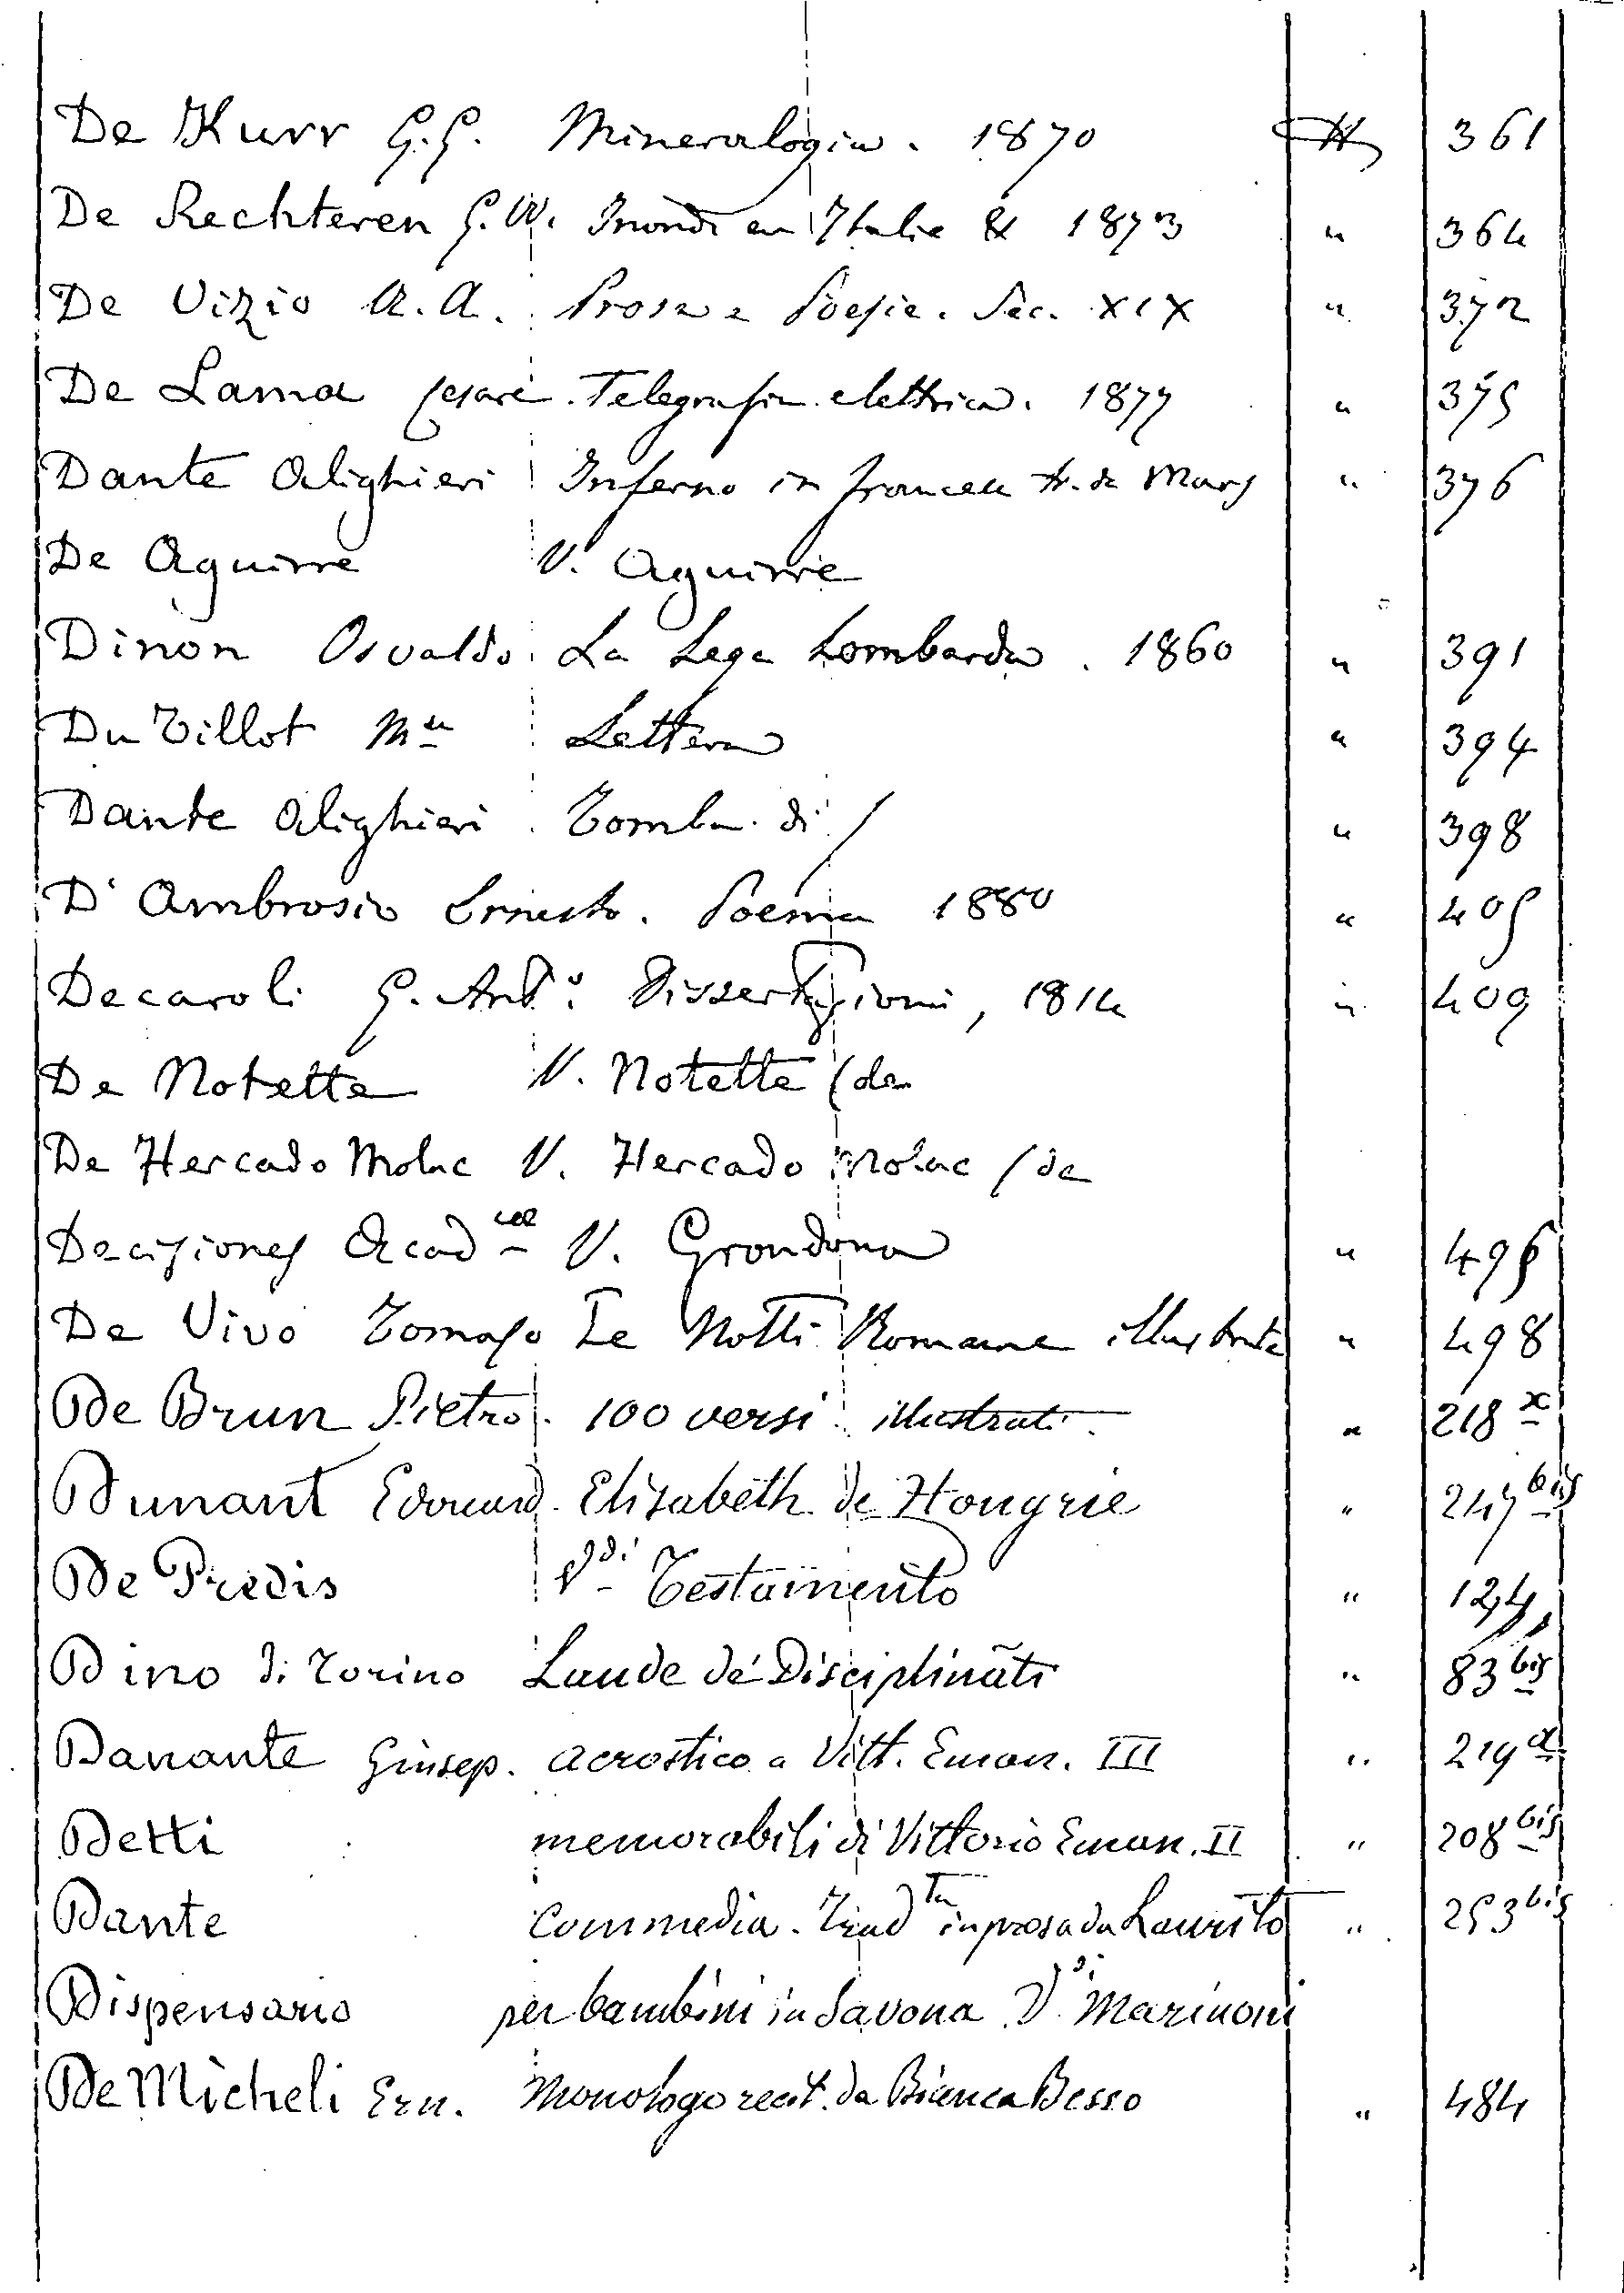 De Kurr G.G. Mineralogia. 1870 H 361
De Rechteren G.W. Inond: en Italie & 1873 " 364
De Vizio A. A. Prose e Poesie. Sec. XIX " 372
De Lama Cesare. Telegrafia elettrica. 1877 " 375
Dante Alighieri Inferno in francese tr. da Mars " 376
De Aguirre V. Aguirre
Dinon Osvaldo La Lega Lombarda. 1860 " 391
Du Tillot Lettera " 394
Dante Alighieri Tomba di / " 398
D'Ambrosio Ernesto. Poema 1880 " 405
Decaroli G. Ant.o Dissertazioni, 1814 " 409
De Notette V. Notette (de
De Hercado Molac V. Hercado Molac (de
Decisiones Acad V. Grondona " 496
De Vivo Tomaso Le Notti Romane illustrate " 498
De Brun Pietro. 100 versi illustrati " 218 x
Dunant Edouard. Elisabeth de Hongrie " 247 bis
De Predis Vdi Testamento " 124
Dino di Torino Laude de' Disciplinati " 83 bis
Danante Giusep. acrostico a Vitt. Eman. III " 219 a
Detti memorabili di Vittorio Eman. II " 208 bis
Dante Commedia. Trad ta in prosa da Laurito " 253 bis
Dispensario per bambini in Savona Vdi Marinoni
De Micheli Ern. Monologo recit. da Bianca Besso " 484